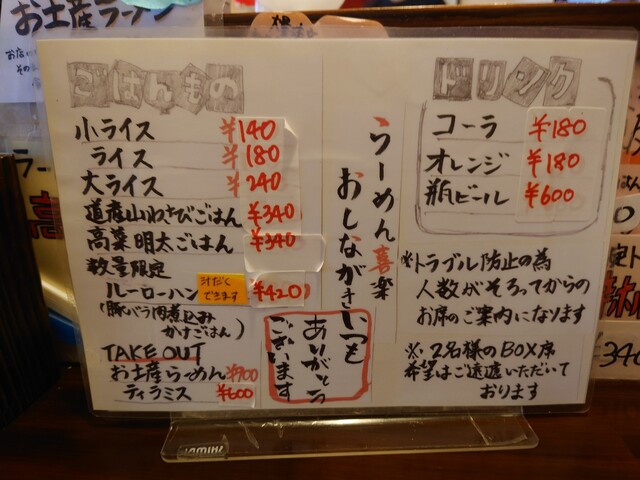 お土産ラーメン
ごはんもの
小ライス ¥140
ライス ¥180
大ライス ¥240
道産山わさびごはん ¥340
高菜明太ごはん ¥340
数量限定
ルーローハン 汁だくできます ¥420
(豚バラ肉煮込みかけごはん)
TAKE OUT
お土産らーめん ¥700
ティラミス ¥600
らーめん喜楽
おしながき
いつも
ありがとう
ございます
ドリンク
コーラ ¥180
オレンジ ¥180
瓶ビール ¥600
※トラブル防止の為
人数がそろってからの
お席のご案内になります
※2名様のBOX席
希望はご遠慮いただいて
おります